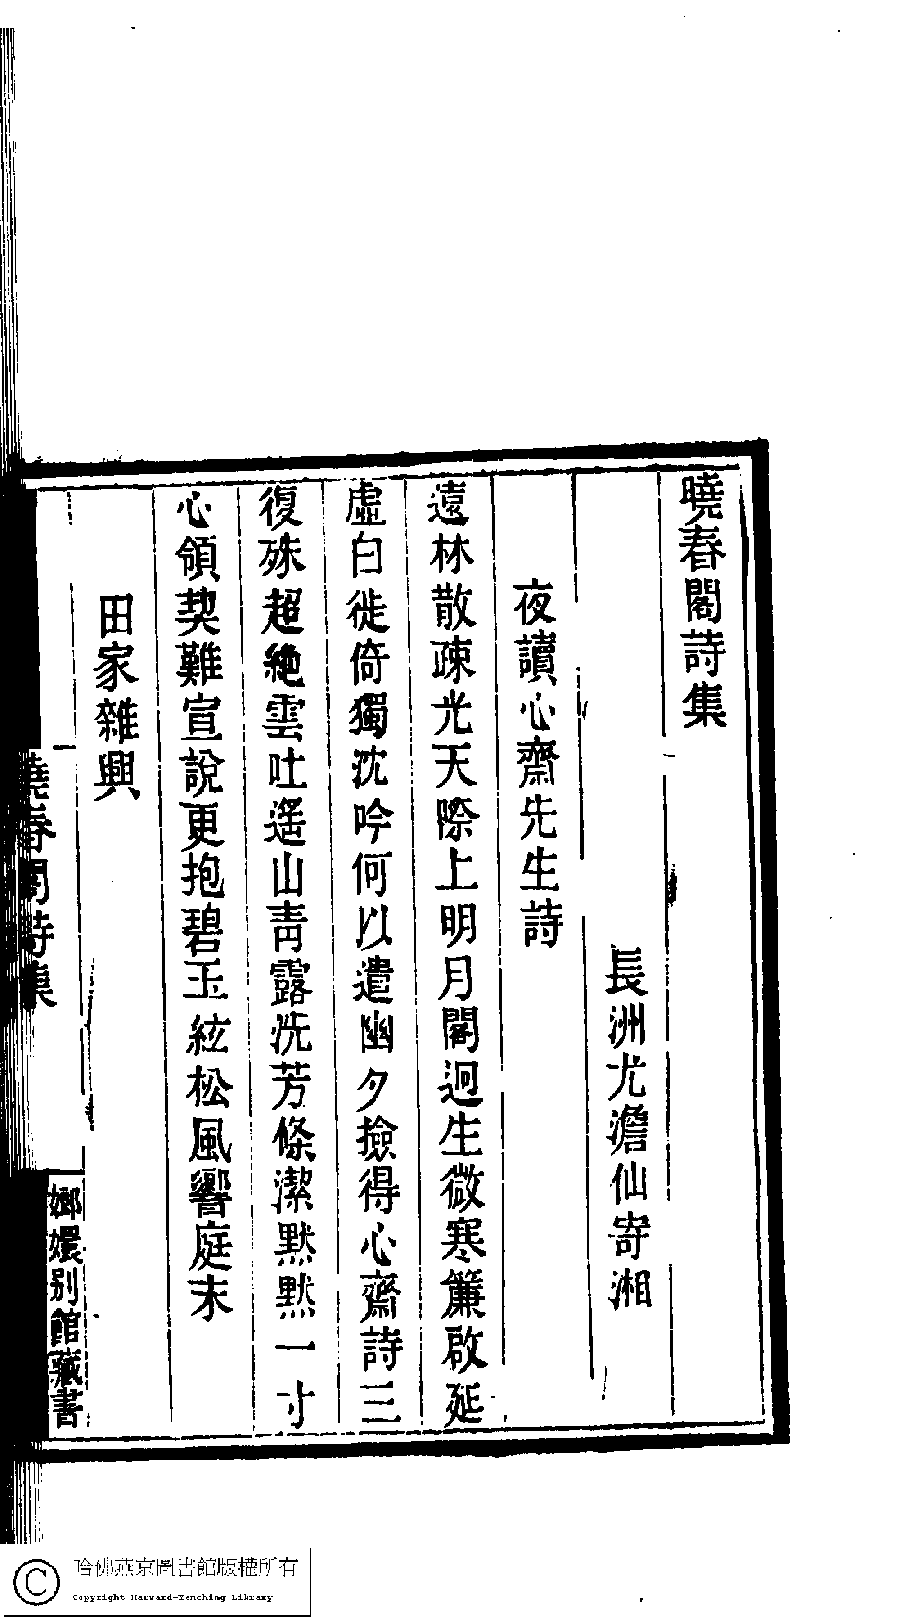 曉春閣詩集
長洲尤澹仙寄湘
夜讀心齋先生詩
遠林散疎光天際上明月閣迥生微寒簾啟延
虛白徙倚獨沈吟何以遣幽夕撿得心齋詩三
復殊超絶雲吐遥山青露洗芳條潔默默一寸
心領契難宣說更抱碧玉絃松風響庭末
田家雜興
曉春閣詩集
一
嫏嬛别館藏書
哈佛燕京圖書館版權所有
Copyright Harvard-Yenching Library